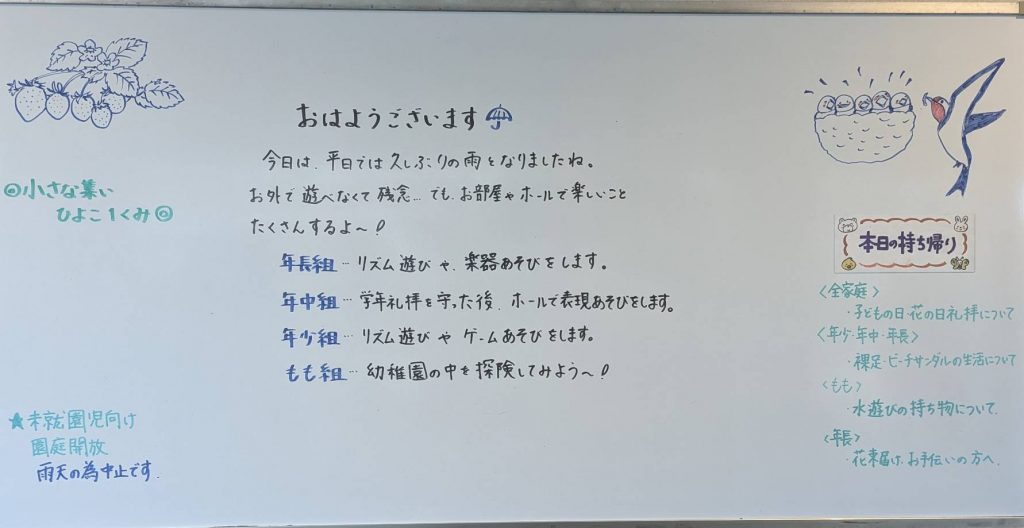 おはようございます
今日は、平日では久しぶりの雨となりましたね。
お外で遊べなくて残念… でも、お部屋やホールで楽しいこと
たくさんするよ〜！
年長組… リズム遊びや、楽器あそびをします。
年中組… 学年礼拝を守った後、ホールで表現あそびをします。
年少組… リズム遊びやゲームあそびをします。
もも組… 幼稚園の中を探険してみよう〜！
◎小さな集い
ひよこ1くみ◎
★未就園児向け
園庭開放
雨天の為中止です。
本日の持ち帰り
〈全家庭〉
・子どもの日・花の日礼拝について
〈年少・年中・年長〉
・裸足・ビーチサンダルの生活について
〈もも〉
・水遊びの持ち物について
〈年長〉
・花束届け、お手伝いの方へ